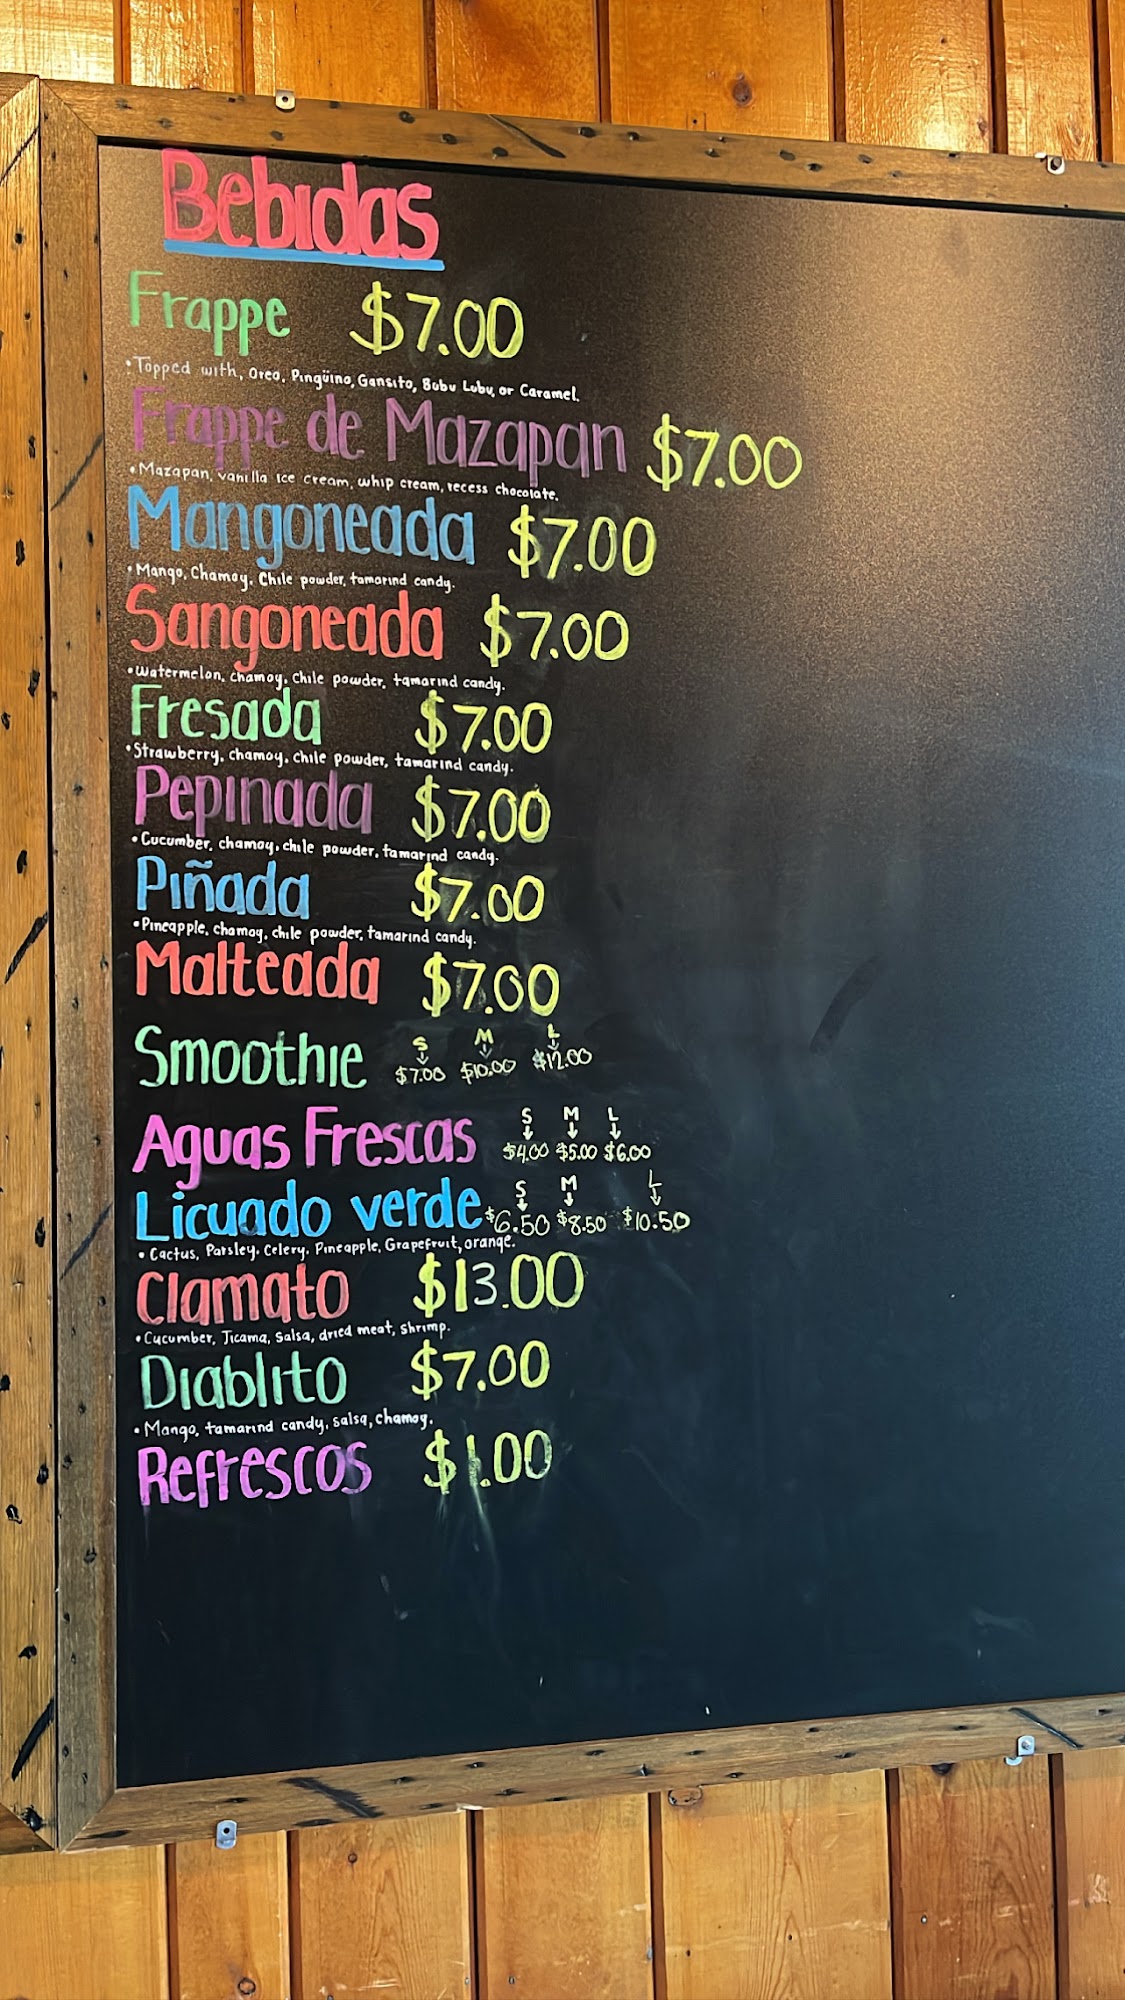 Bebidas
Frappe $7.00
•Topped with, Oreo, Pingüino, Gansito, Bubu Lubu, or Caramel.
Frappe de Mazapan $7.00
•Mazapan, vanilla ice cream, whip cream, recess chocolate.
Mangoneada $7.00
•Mango, Chamoy, Chile powder, tamarind candy.
Sangoneada $7.00
•Watermelon, chamoy, chile powder, tamarind candy.
Fresada $7.00
•Strawberry, chamoy, chile powder, tamarind candy.
Pepinada $7.00
•Cucumber, chamoy, chile powder, tamarind candy.
Piñada $7.00
•Pineapple, chamoy, chile powder, tamarind candy.
Malteada $7.00
S M L
Smoothie $7.00 $10.00 $12.00
S M L
Aguas Frescas $4.00 $5.00 $6.00
S M L
Licuado verde $6.50 $8.50 $10.50
•Cactus, Parsley, Celery, Pineapple, Grapefruit, orange.
Clamato $13.00
•Cucumber, Jicama, Salsa, dried meat, shrimp.
Diablito $7.00
•Mango, tamarind candy, salsa, chamoy.
Refrescos $1.00